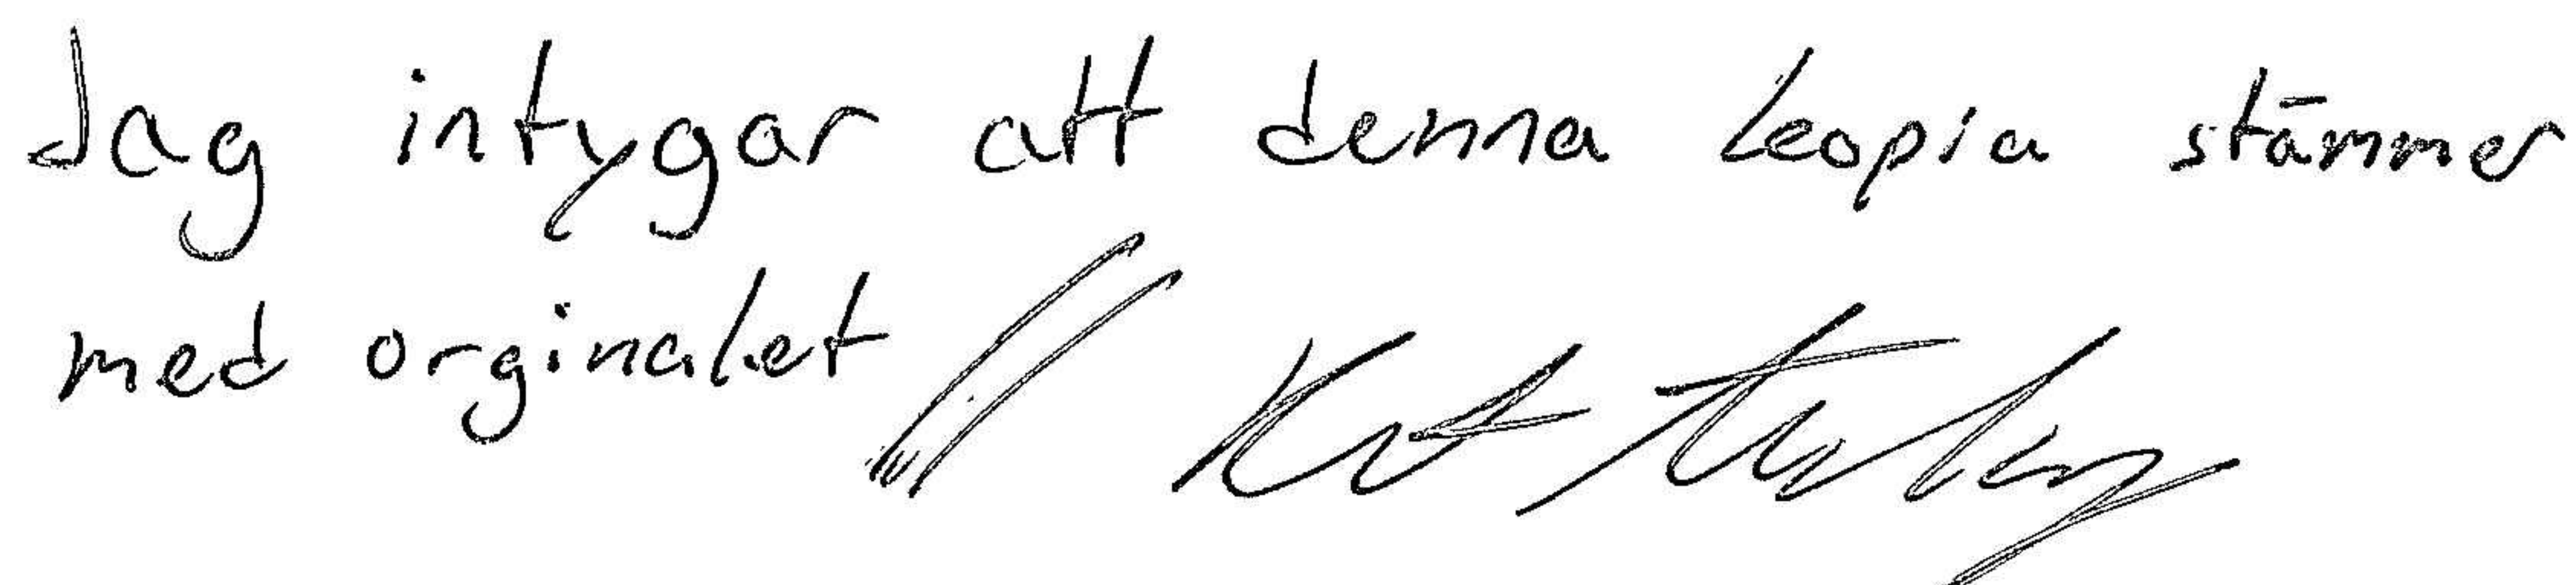 Jag intygar att denna kopia stämmer
med orginalet //